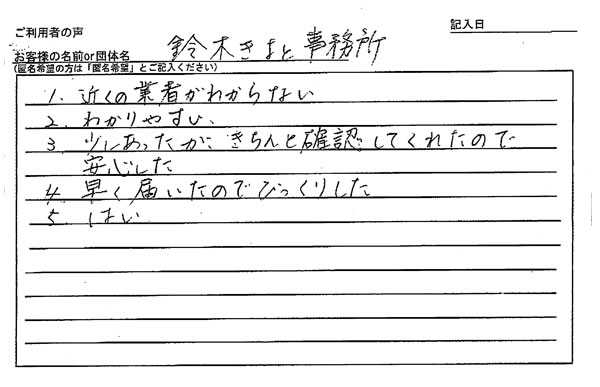 ご利用者の声
記入日
お客様の名前or団体名 鈴木きよと事務所
(匿名希望の方は「匿名希望」とご記入ください)
1. 近くの業者がわからない
2. わかりやすい、
3 少しあったが きちんと確認してくれたので
安心した
4. 早く届いたのでびっくりした
5. はい